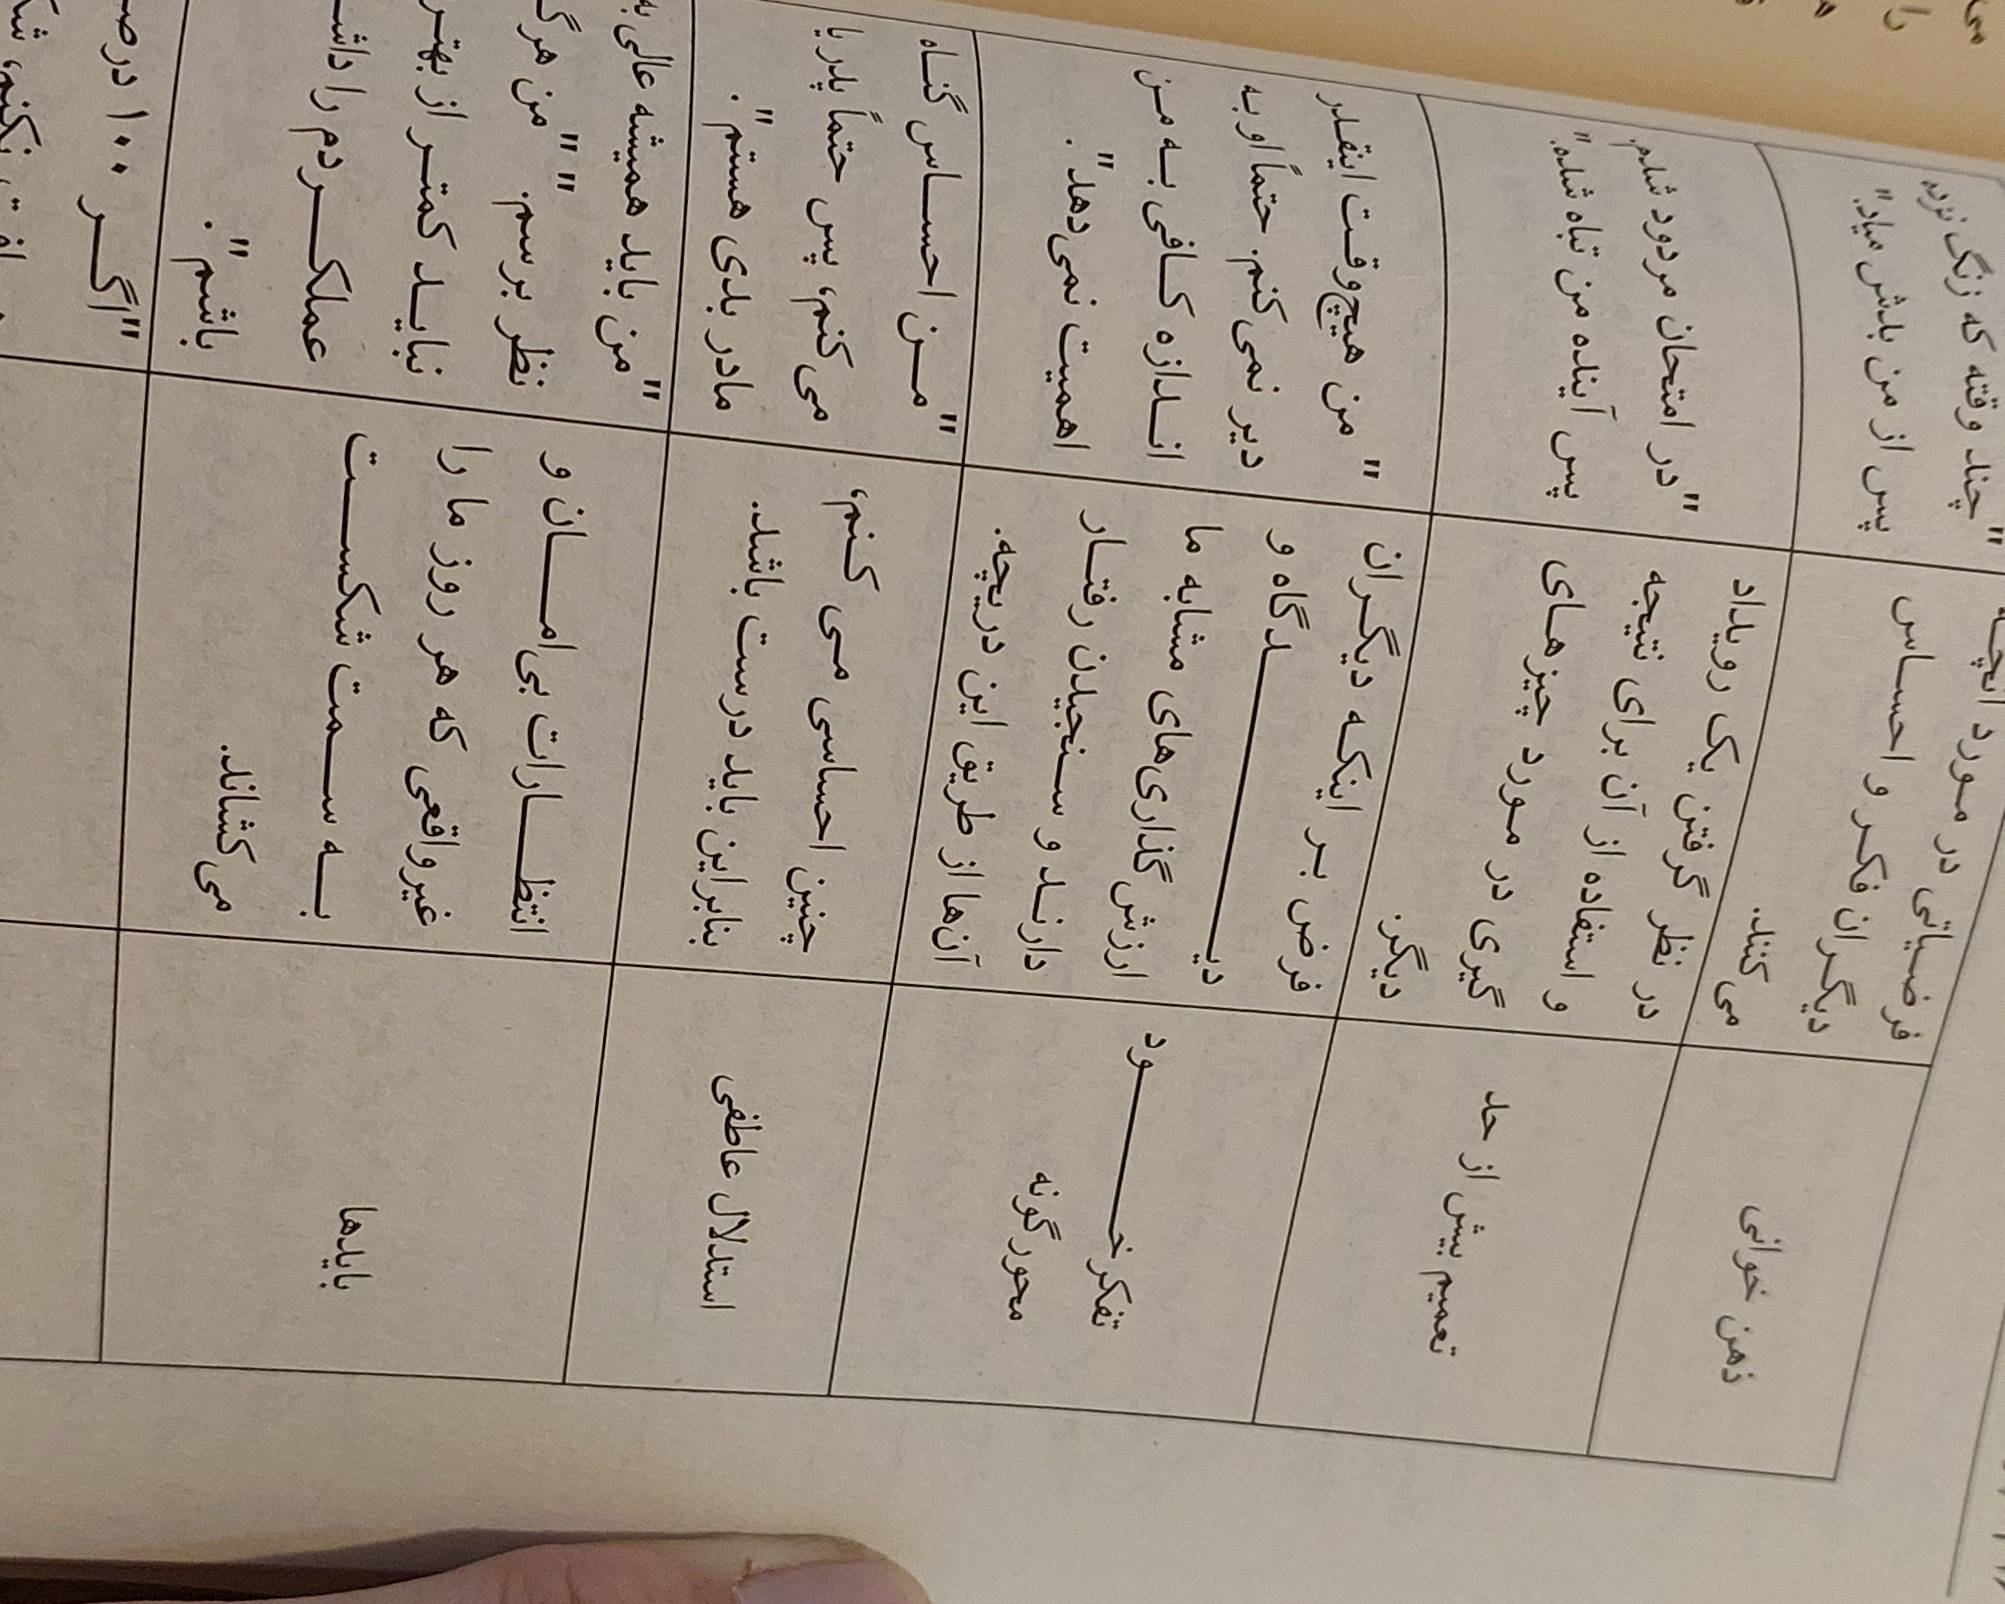 ذهن خوانی
فرضیاتی در مورد آنچه
دیگران فکر و احساس
می کنند.
"چند وقته که زنگ نزده
پس از من بدش میاد."
تعمیم بیش از حد
در نظر گرفتن یک رویداد
و استفاده از آن برای نتیجه
گیری در مورد چیزهای
دیگر.
"در امتحان مردود شدم.
پس آینده من تباه شده."
تفکر خود
محور گونه
فرض بر اینکه دیگران
دیدگاه و
ارزش گذاری‌های مشابه ما
دارند و سنجیدن رفتار
آن‌ها از طریق این دریچه.
"من هیچ‌وقت اینقدر
دیر نمی‌کنم. حتماً او به
اندازه کافی به من
اهمیت نمی‌دهد".
استدلال عاطفی
چنین احساسی می کنم،
بنابراین باید درست باشد.
"من احساس گناه
می‌کنم، پس حتماً پدر یا
مادر بدی هستم".
بایدها
انتظارات بی‌امان و
غیرواقعی که هر روز ما را
به سمت شکست
می‌کشاند.
"من باید همیشه عالی به
نظر برسم." "من
نباید کمتر از
عملکردم را
باشم".
"اگر ۱۰۰